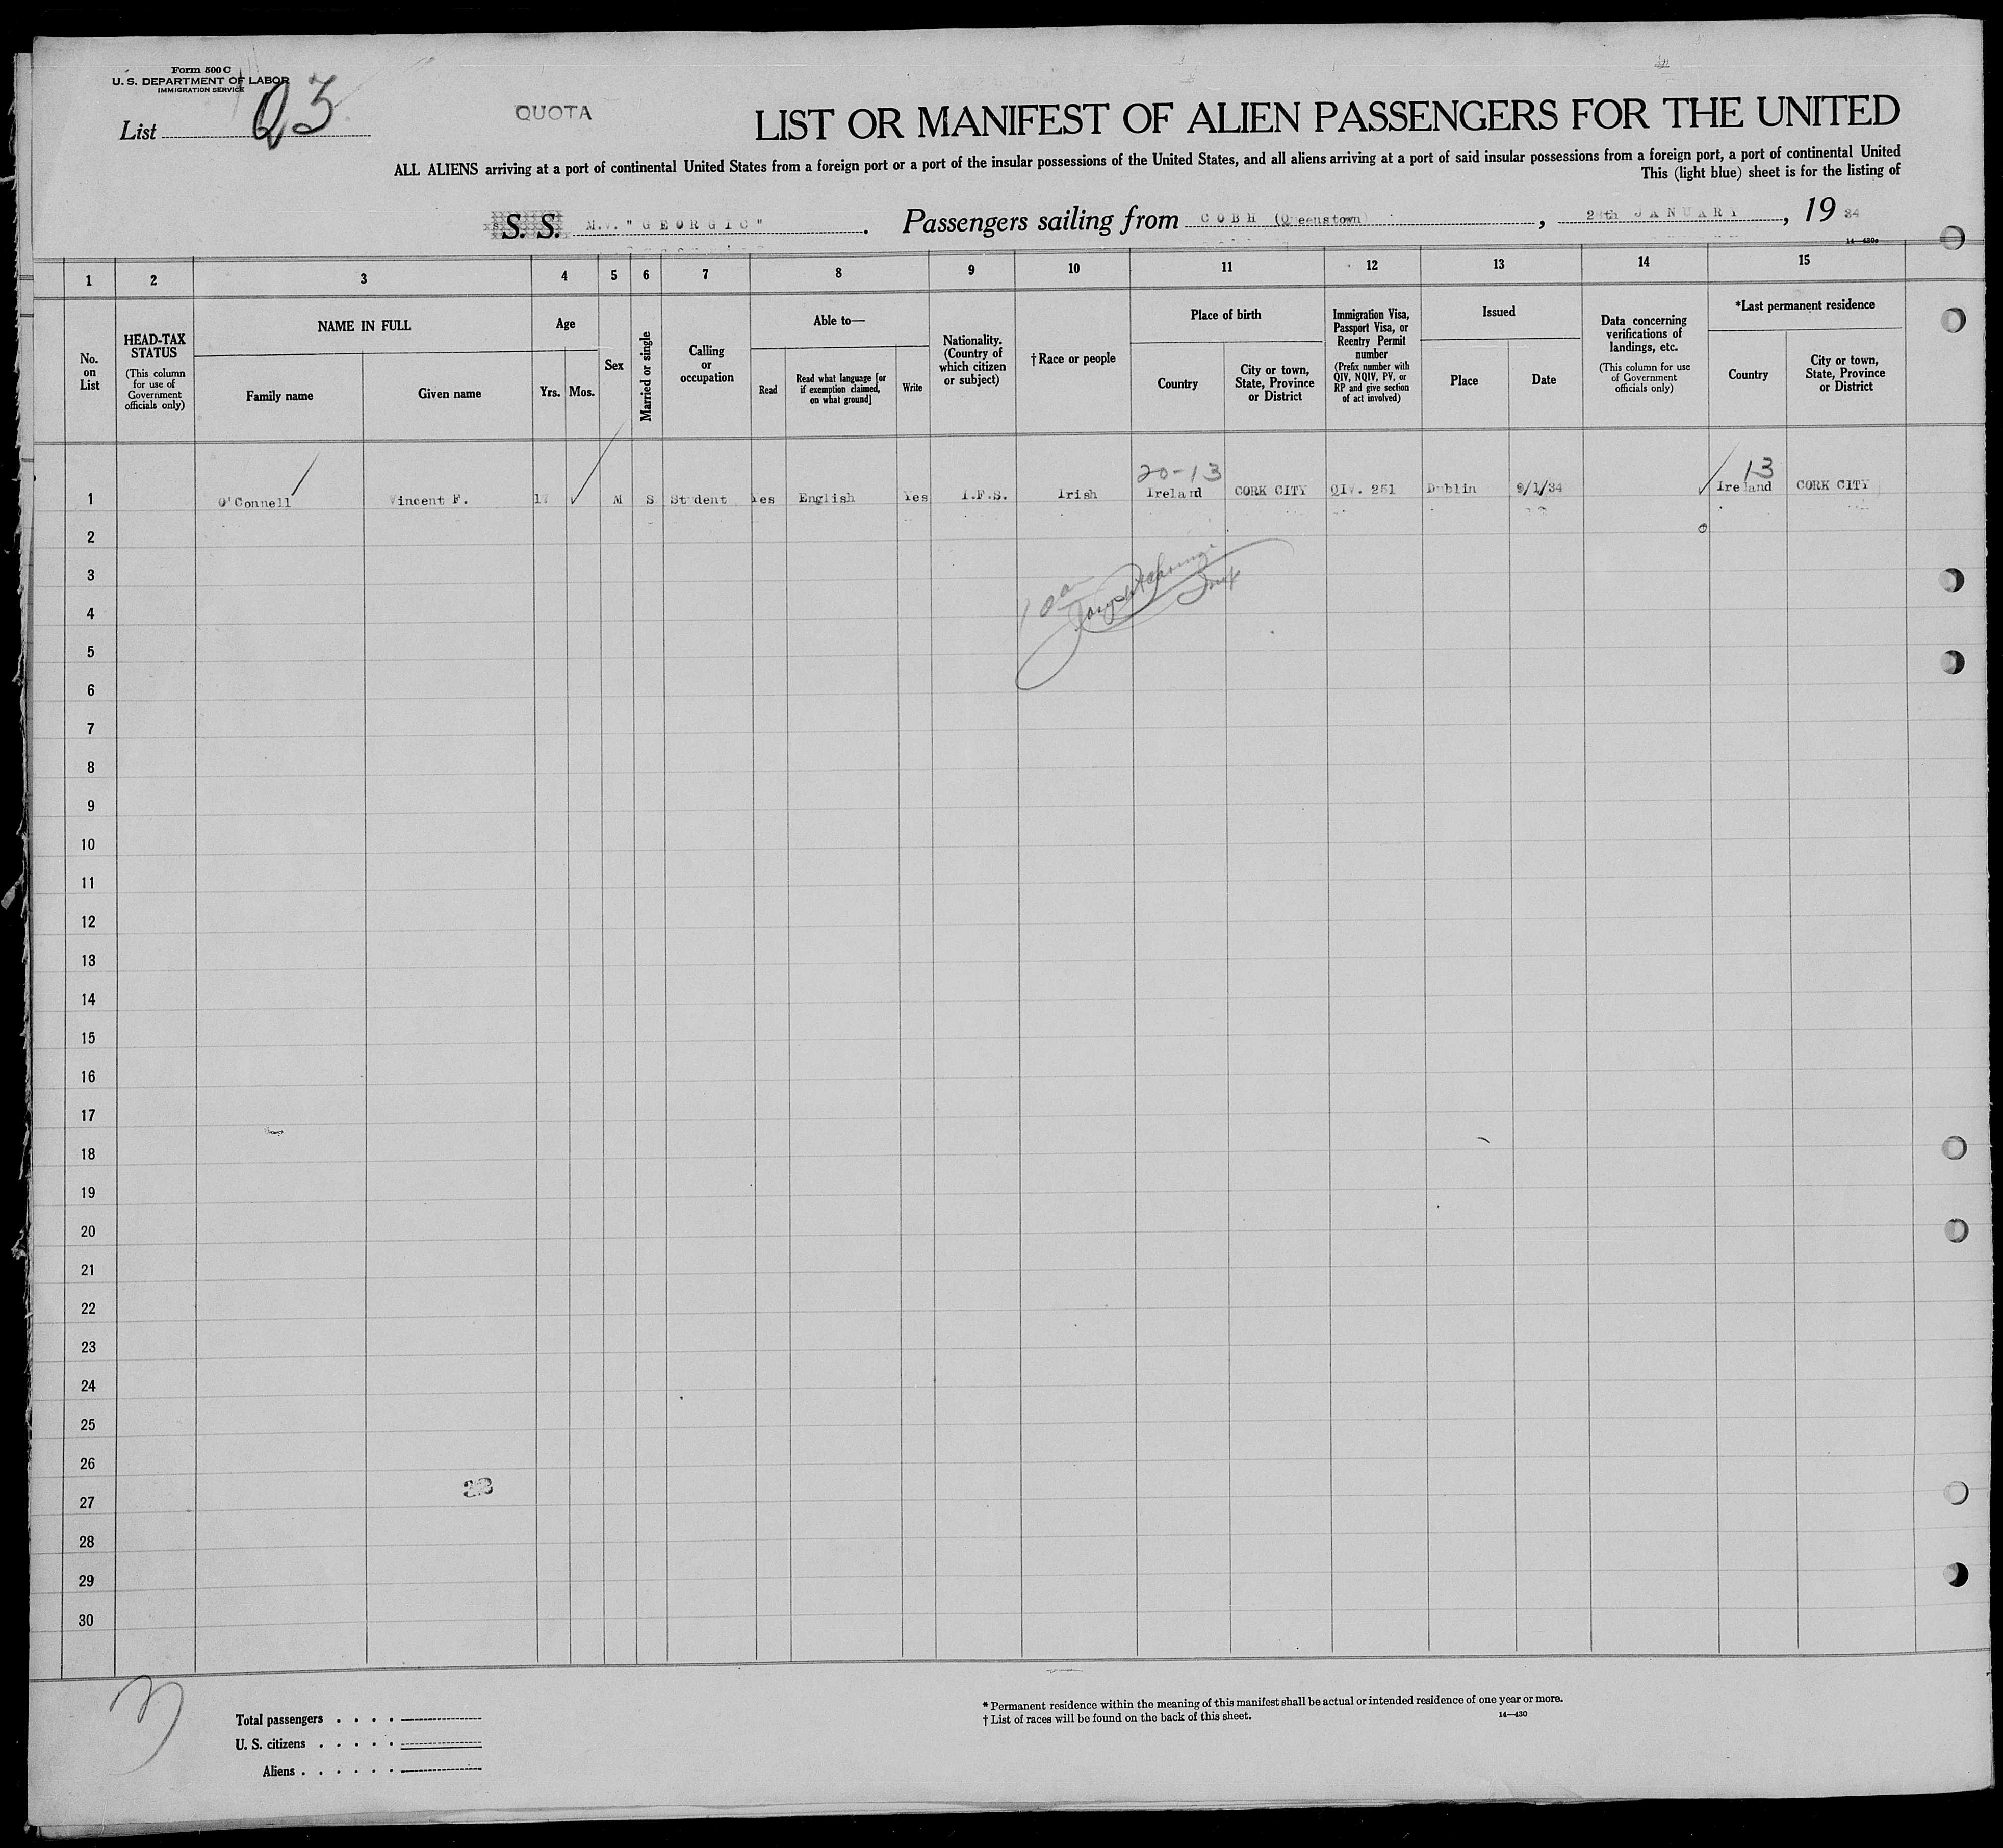 Form 500 C
U. S. DEPARTMENT OF LABOR
IMMIGRATION SERVICE
List Q3
QUOTA
LIST OR MANIFEST OF ALIEN PASSENGERS FOR THE UNITED
ALL ALIENS arriving at a port of continental United States from a foreign port or a port of the insular possessions of the United States, and all aliens arriving at a port of said insular possessions from a foreign port, a port of continental United
This (light blue) sheet is for the listing of
S. S. M.V. "GEORGIC". Passengers sailing from COBH (Queenstown), JANUARY, 19 34
14—430c
1 2 3 4 5 6 7 8 9 10 11 12 13 14 15
No. on List
HEAD-TAX STATUS
(This column for use of Government officials only)
NAME IN FULL
Family name
Given name
Age
Yrs.
Mos.
Sex
Married or single
Calling or occupation
Able to—
Read
Read what language [or if exemption claimed, on what ground]
Write
Nationality. (Country of which citizen or subject)
†Race or people
Place of birth
Country
City or town, State, Province or District
Immigration Visa, Passport Visa, or Reentry Permit number
(Prefix number with QIV, NQIV, PV, or RP and give section of act involved)
Issued
Place
Date
Data concerning verifications of landings, etc.
(This column for use of Government officials only)
*Last permanent residence
Country
City or town, State, Province or District
20-13
13
1 O'Connell Vincent F. 17 M S Student Yes English Yes I.F.S. Irish Ireland CORK CITY QIV. 251 Dublin 9/1/34 Ireland CORK CITY
2
3
4
5
6
7
8
9
10
11
12
13
14
15
16
17
18
19
20
21
22
23
24
25
26
27
28
29
30
Total passengers . . . .
U. S. citizens . . . . .
Aliens . . . . . .
* Permanent residence within the meaning of this manifest shall be actual or intended residence of one year or more.
† List of races will be found on the back of this sheet.
14—430